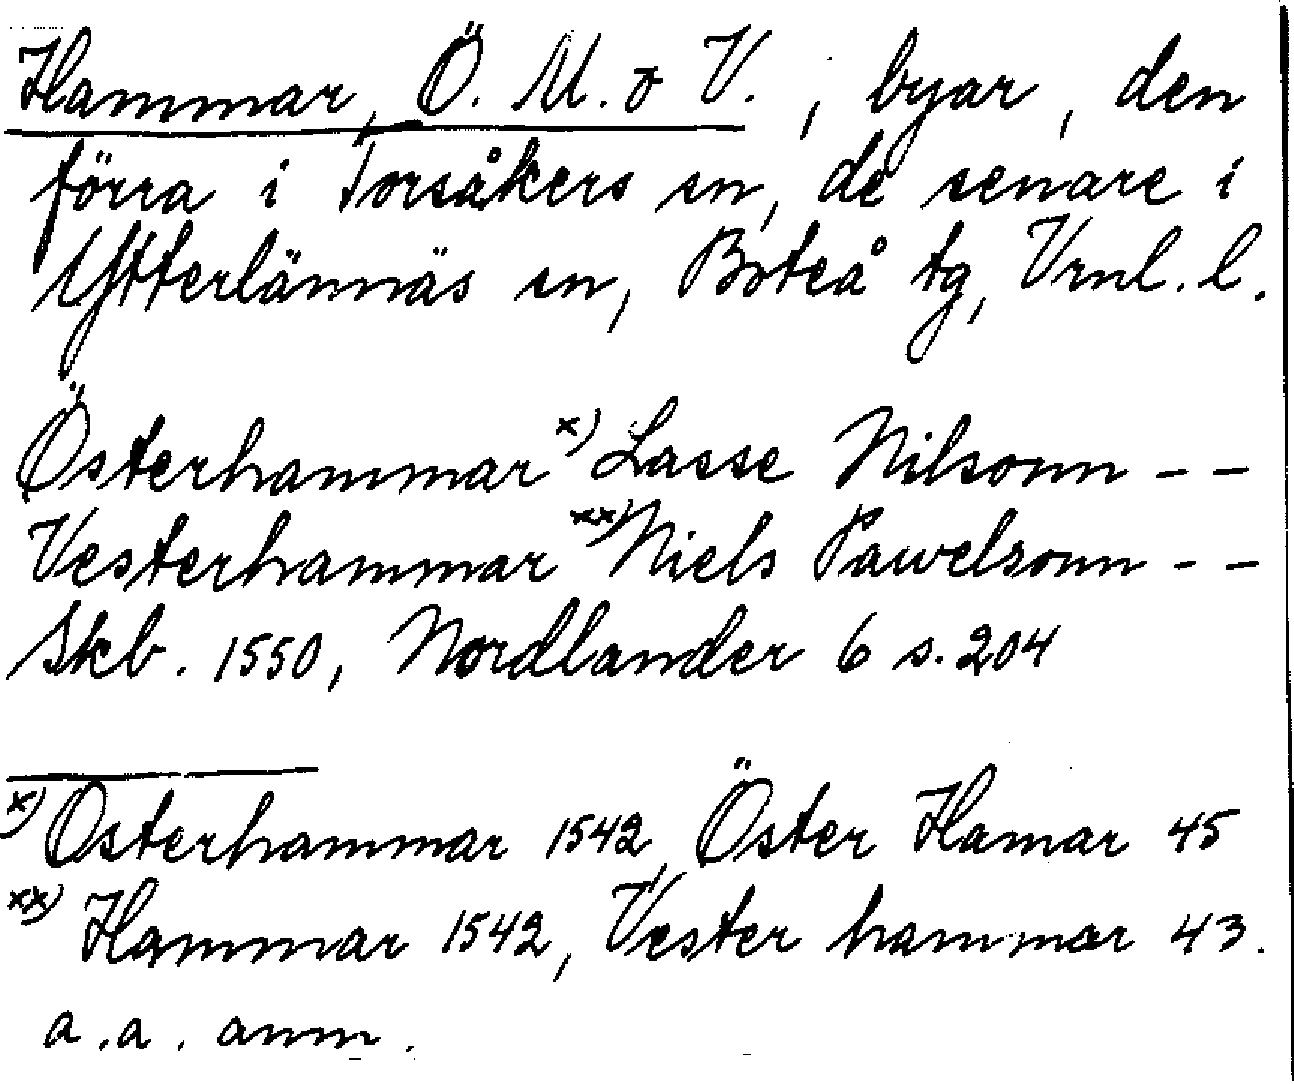 Hammar, Ö. M. o V., byar, den
förra i Torsåkers sn, de senare i
Ytterlännäs sn, Boteå tg, Vrnl. l.
Österhammar x) Lasse Nilsonn - -
Vesterhammar xx) Niels Pawelsonn - -
Skb. 1550, Nordlander 6 s. 204
x) Osterhammar 1542, Öster Hamar 45
xx) Hammar 1542, Vester hammar 43.
a. a. anm.